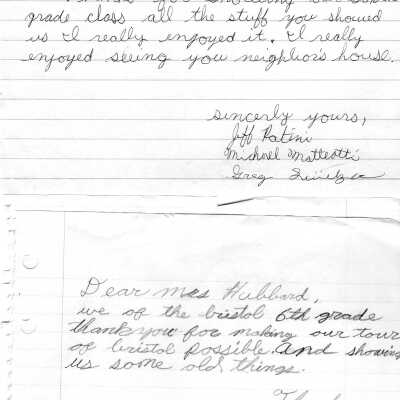 grade class all the stuff you showed
us I really enjoyed it. I really
enjoyed seeing you neighbors house.
sincerly yours,
Jeff Patini
Michael Matteotti
Greg
Dear Mrs Hubbard,
we of the bristol 6th grade
thankyou for making our tour
of bristol possible. And showing
us some old things.